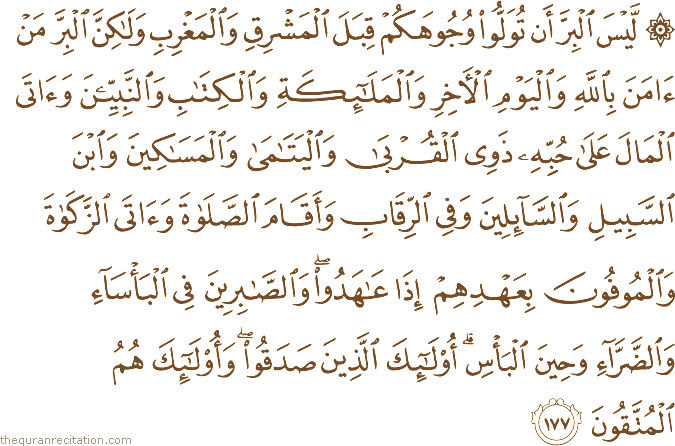 ۞ لَّيْسَ ٱلْبِرَّ أَن تُوَلُّوا۟ وُجُوهَكُمْ قِبَلَ ٱلْمَشْرِقِ وَٱلْمَغْرِبِ وَلَـٰكِنَّ ٱلْبِرَّ مَنْ
ءَامَنَ بِٱللَّهِ وَٱلْيَوْمِ ٱلْـَٔاخِرِ وَٱلْمَلَـٰٓئِكَةِ وَٱلْكِتَـٰبِ وَٱلنَّبِيِّـۧنَ وَءَاتَى
ٱلْمَالَ عَلَىٰ حُبِّهِۦ ذَوِى ٱلْقُرْبَىٰ وَٱلْيَتَـٰمَىٰ وَٱلْمَسَـٰكِينَ وَٱبْنَ
ٱلسَّبِيلِ وَٱلسَّآئِلِينَ وَفِى ٱلرِّقَابِ وَأَقَامَ ٱلصَّلَوٰةَ وَءَاتَى ٱلزَّكَوٰةَ
وَٱلْمُوفُونَ بِعَهْدِهِمْ إِذَا عَـٰهَدُوا۟ ۖ وَٱلصَّـٰبِرِينَ فِى ٱلْبَأْسَآءِ
وَٱلضَّرَّآءِ وَحِينَ ٱلْبَأْسِ ۗ أُو۟لَـٰٓئِكَ ٱلَّذِينَ صَدَقُوا۟ ۖ وَأُو۟لَـٰٓئِكَ هُمُ
ٱلْمُتَّقُونَ ١٧٧
thequranrecitation.com